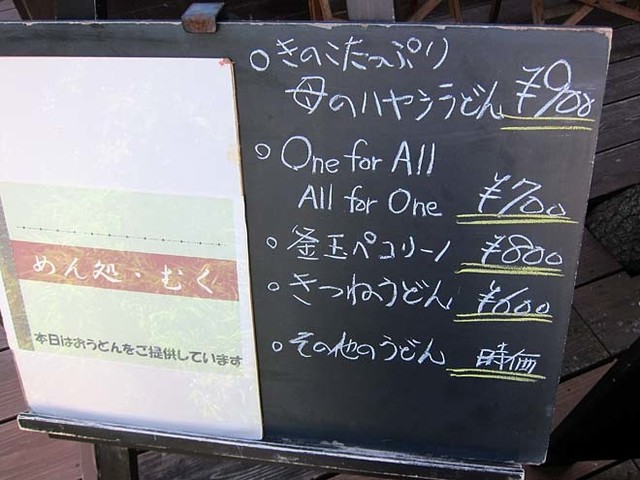 めん処・むく
本日はおうどんをご提供しています
○きのこたっぷり
母のハヤシうどん ¥900
○One for All
All for One ¥700
○釜玉ペコリーノ ¥800
○きつねうどん ¥600
○その他のうどん 時価